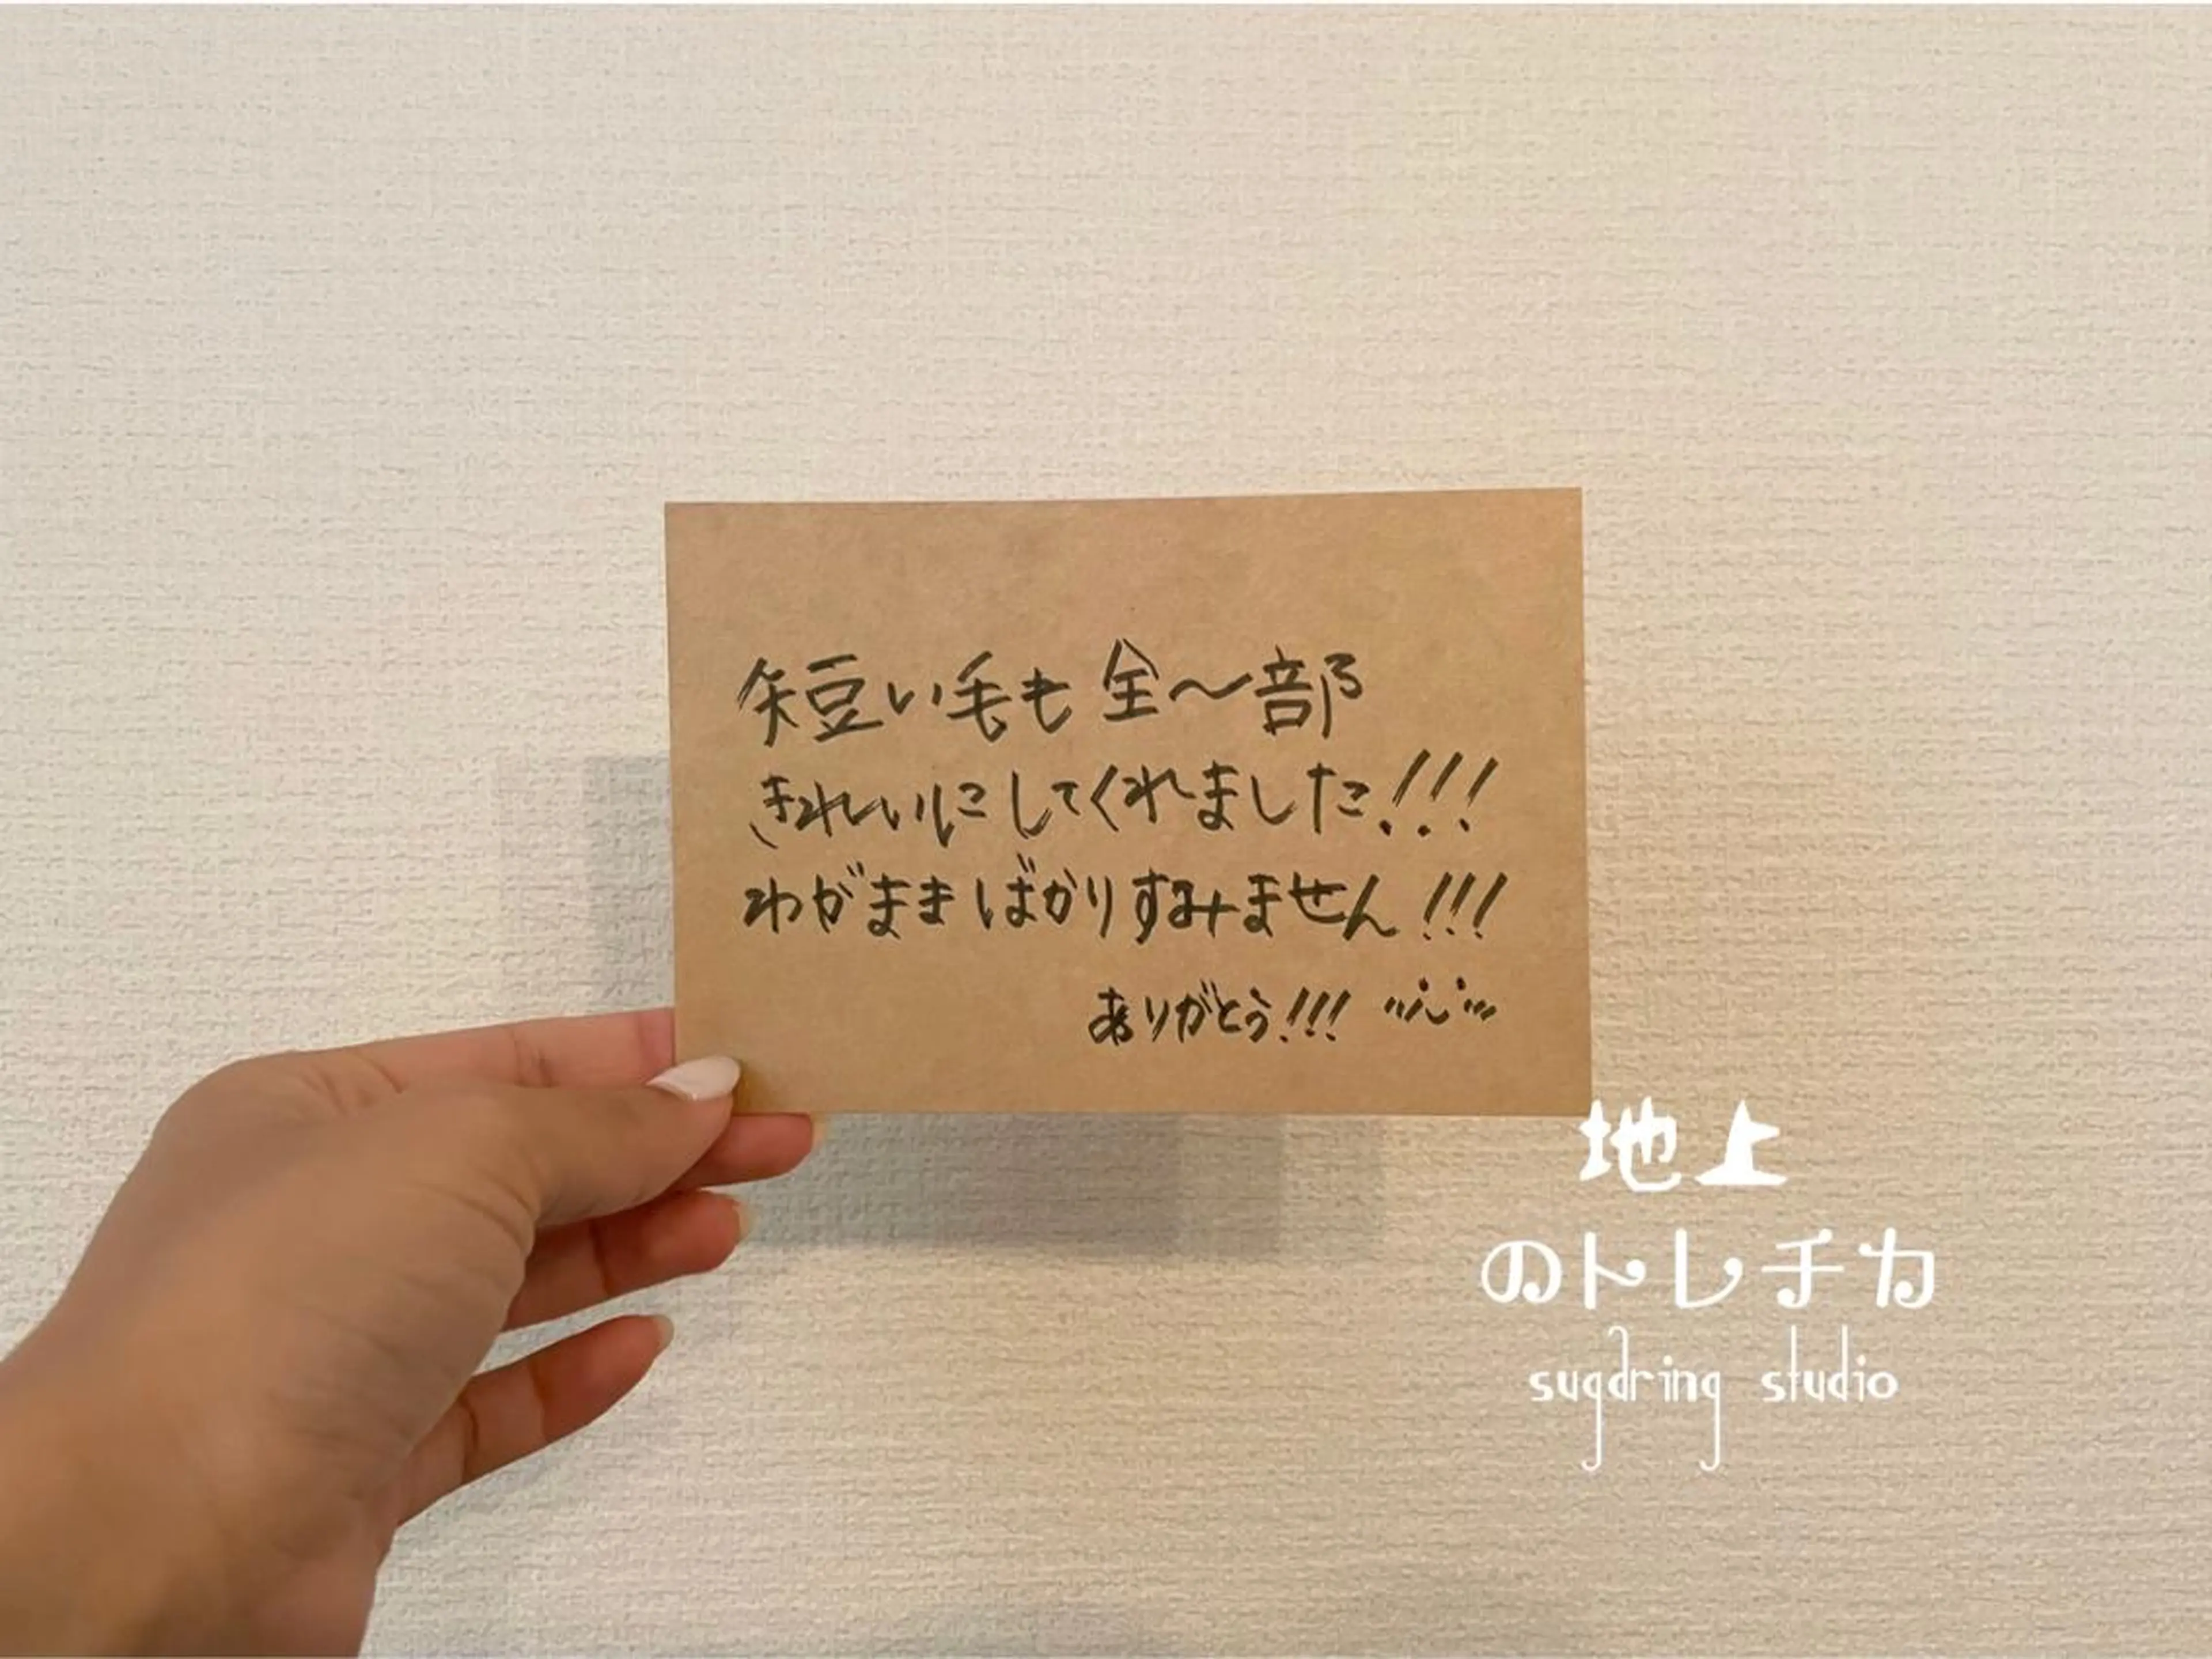 短い毛も全〜部
きれいにしてくれました!!!
わがままばかりすみません!!!
ありがとう!!!
地上
のトレチカ
sugdring studio